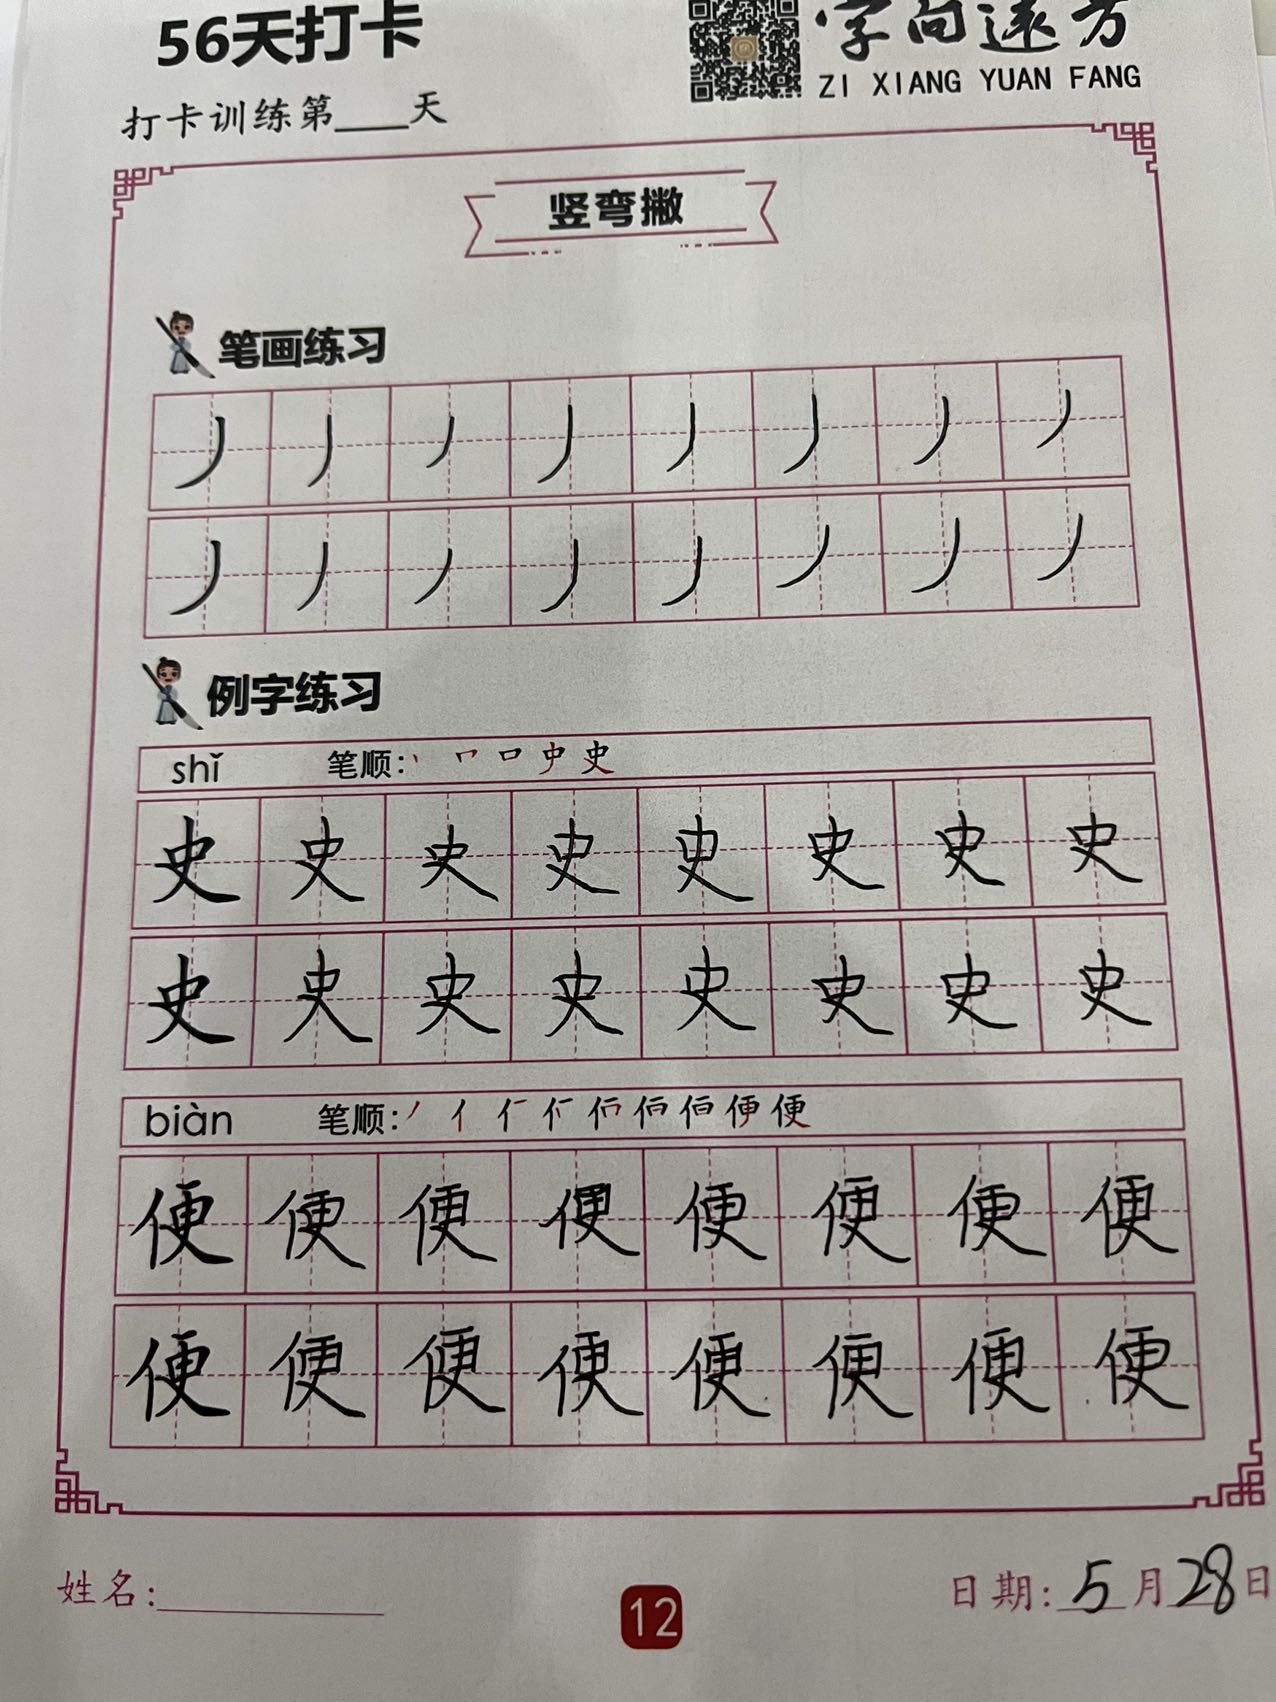 56天打卡
字向远方
ZI XIANG YUAN FANG
打卡训练第____天
竖弯撇
笔画练习
㇓㇓㇓㇓㇓㇓㇓㇓
㇓㇓㇓㇓㇓㇓㇓㇓
例字练习
shǐ 笔顺: 丨 ㇕ 口 史 史
史史史史史史史史
史史史史史史史史
biàn 笔顺: 丿 亻 便
便便便便便便便便
便便便便便便便便
姓名:
12
日期: 5月28日